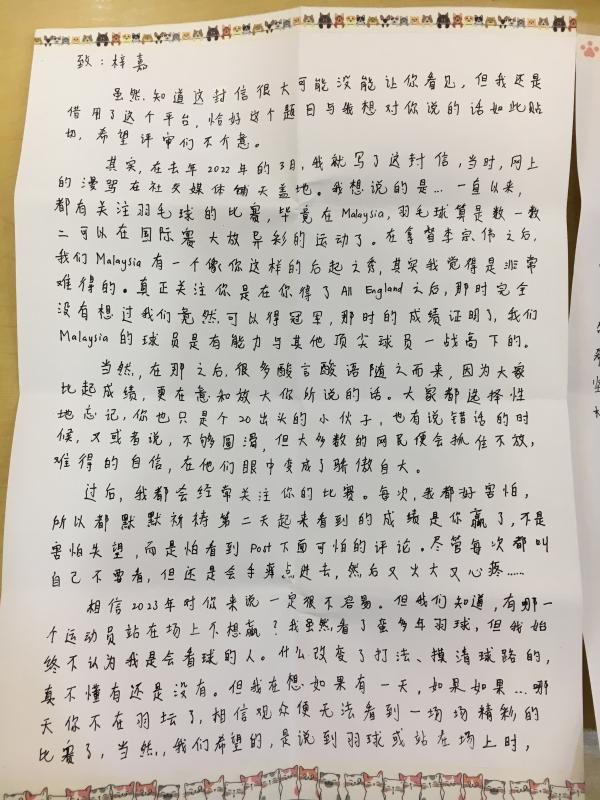 致：梓嘉
虽然知道这封信很大可能没能让你看见，但我还是
借用了这个平台，恰好这个题目与我想对你说的话如此贴
切，希望评审们不介意。
其实，在去年2022年的3月，我就写了这封信，当时，网上
的漫骂在社交媒体铺天盖地。我想说的是...一直以来，
都有关注羽毛球的比赛，毕竟在Malaysia，羽毛球算是数一数
二可以在国际赛大放异彩的运动了。在拿督李宗伟之后，
我们Malaysia有一个像你这样的后起之秀，其实我觉得是非常
难得的。真正关注你是在你得了All England之后，那时完全
没有想过我们竟然可以得冠军，那时的成绩证明了，我们
Malaysia的球员是有能力与其他顶尖球员一战高下的。
当然，在那之后，很多酸言酸语随之而来，因为大家
比起成绩，更在意和放大你所说的话。大家都选择性
地忘记，你也只是个20出头的小伙子，也有说错话的时
候，又或者说，不够圆滑，但大多数的网民便会抓住不放，
难得的自信，在他们眼中变成了骄傲自大。
过后，我都会经常关注你的比赛。每次，我都好害怕，
所以都默默祈祷第二天起来看到的成绩是你赢了，不是
害怕失望，而是怕看到Post下面可怕的评论。尽管每次都叫
自己不要看，但还是会手痒点进去，然后又火大又心疼......
相信2023年对你来说一定很不容易。但我们知道，有哪一
个运动员站在场上不想赢？我虽然看了蛮多年羽球，但我始
终不认为我是会看球的人。什么改变了打法、摸清球路的，
真不懂有还是没有。但我在想如果有一天，如果如果...哪
天你不在羽坛了，相信观众便无法看到一场场精彩的
比赛了，当然，我们希望的，是说到羽球或站在场上时，